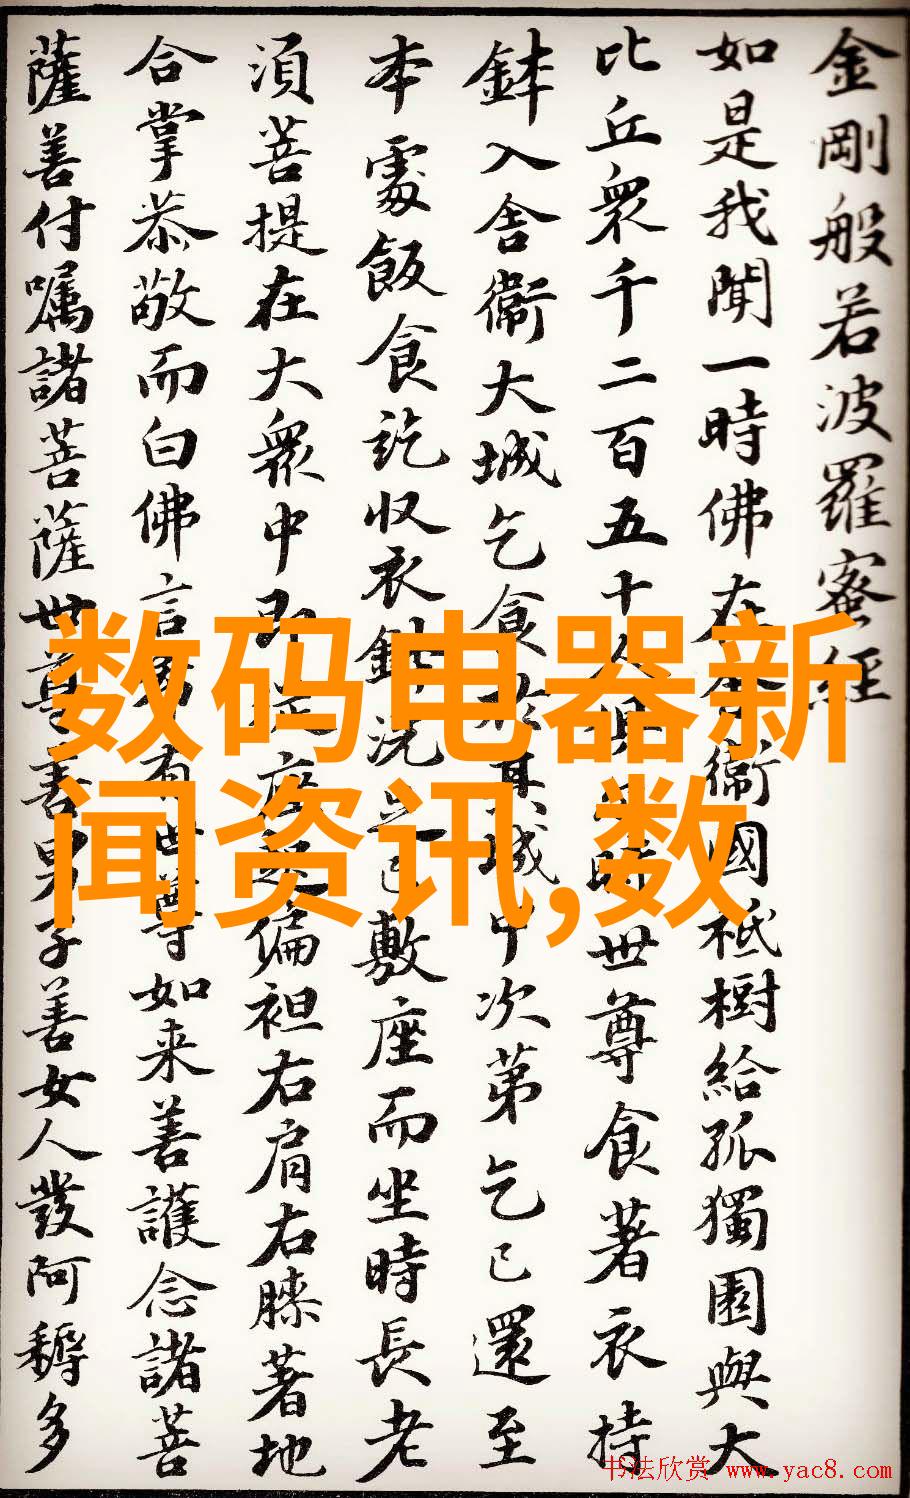 金剛般若波羅蜜經
如是我聞一時佛在舍衞國祇樹給孤獨園與大
比丘衆千二百五十人俱尒時世尊食著衣持
鉢入舎衞大城乞食於其城中次第乞已還至
本處飯食訖収衣鉢洗足已敷座而坐時長老
湏菩提在大衆中即從座起偏袒右肩右膝著地
合掌恭敬而白佛言希有世尊如来善護念諸菩
薩善付嘱諸菩薩世尊善男子善女人發阿耨多
数码电器新
闻资讯,数
书法欣赏 www.yac8.com